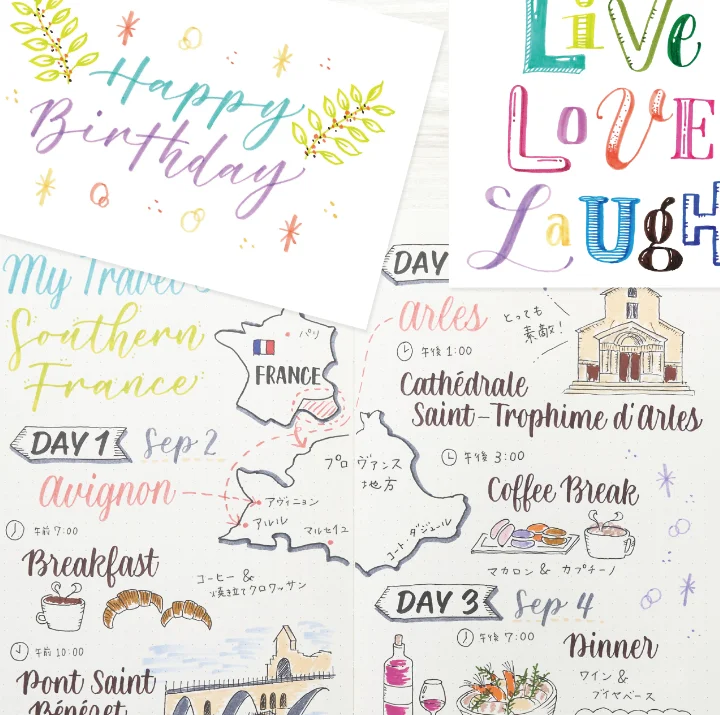 Happy
Birthday
Live
LOVE
LaUgH
My Travel
Southern
France
パリ
FRANCE
DAY 1 Sep 2
avignon
プロヴァンス
地方
アヴィニョン
アルル
マルセイユ
コート・ダジュール
午前 7:00
Breakfast
コーヒー &
焼き立てクロワッサン
午前 10:00
Pont Saint
Bénézet
DAY
arles
とっても
素敵!
午後 1:00
Cathédrale
Saint-Trophime d'Arles
午後 3:00
Coffee Break
マカロン & カプチーノ
DAY 3 Sep 4
午後 7:00
Dinner
ワイン &
ブイヤベース